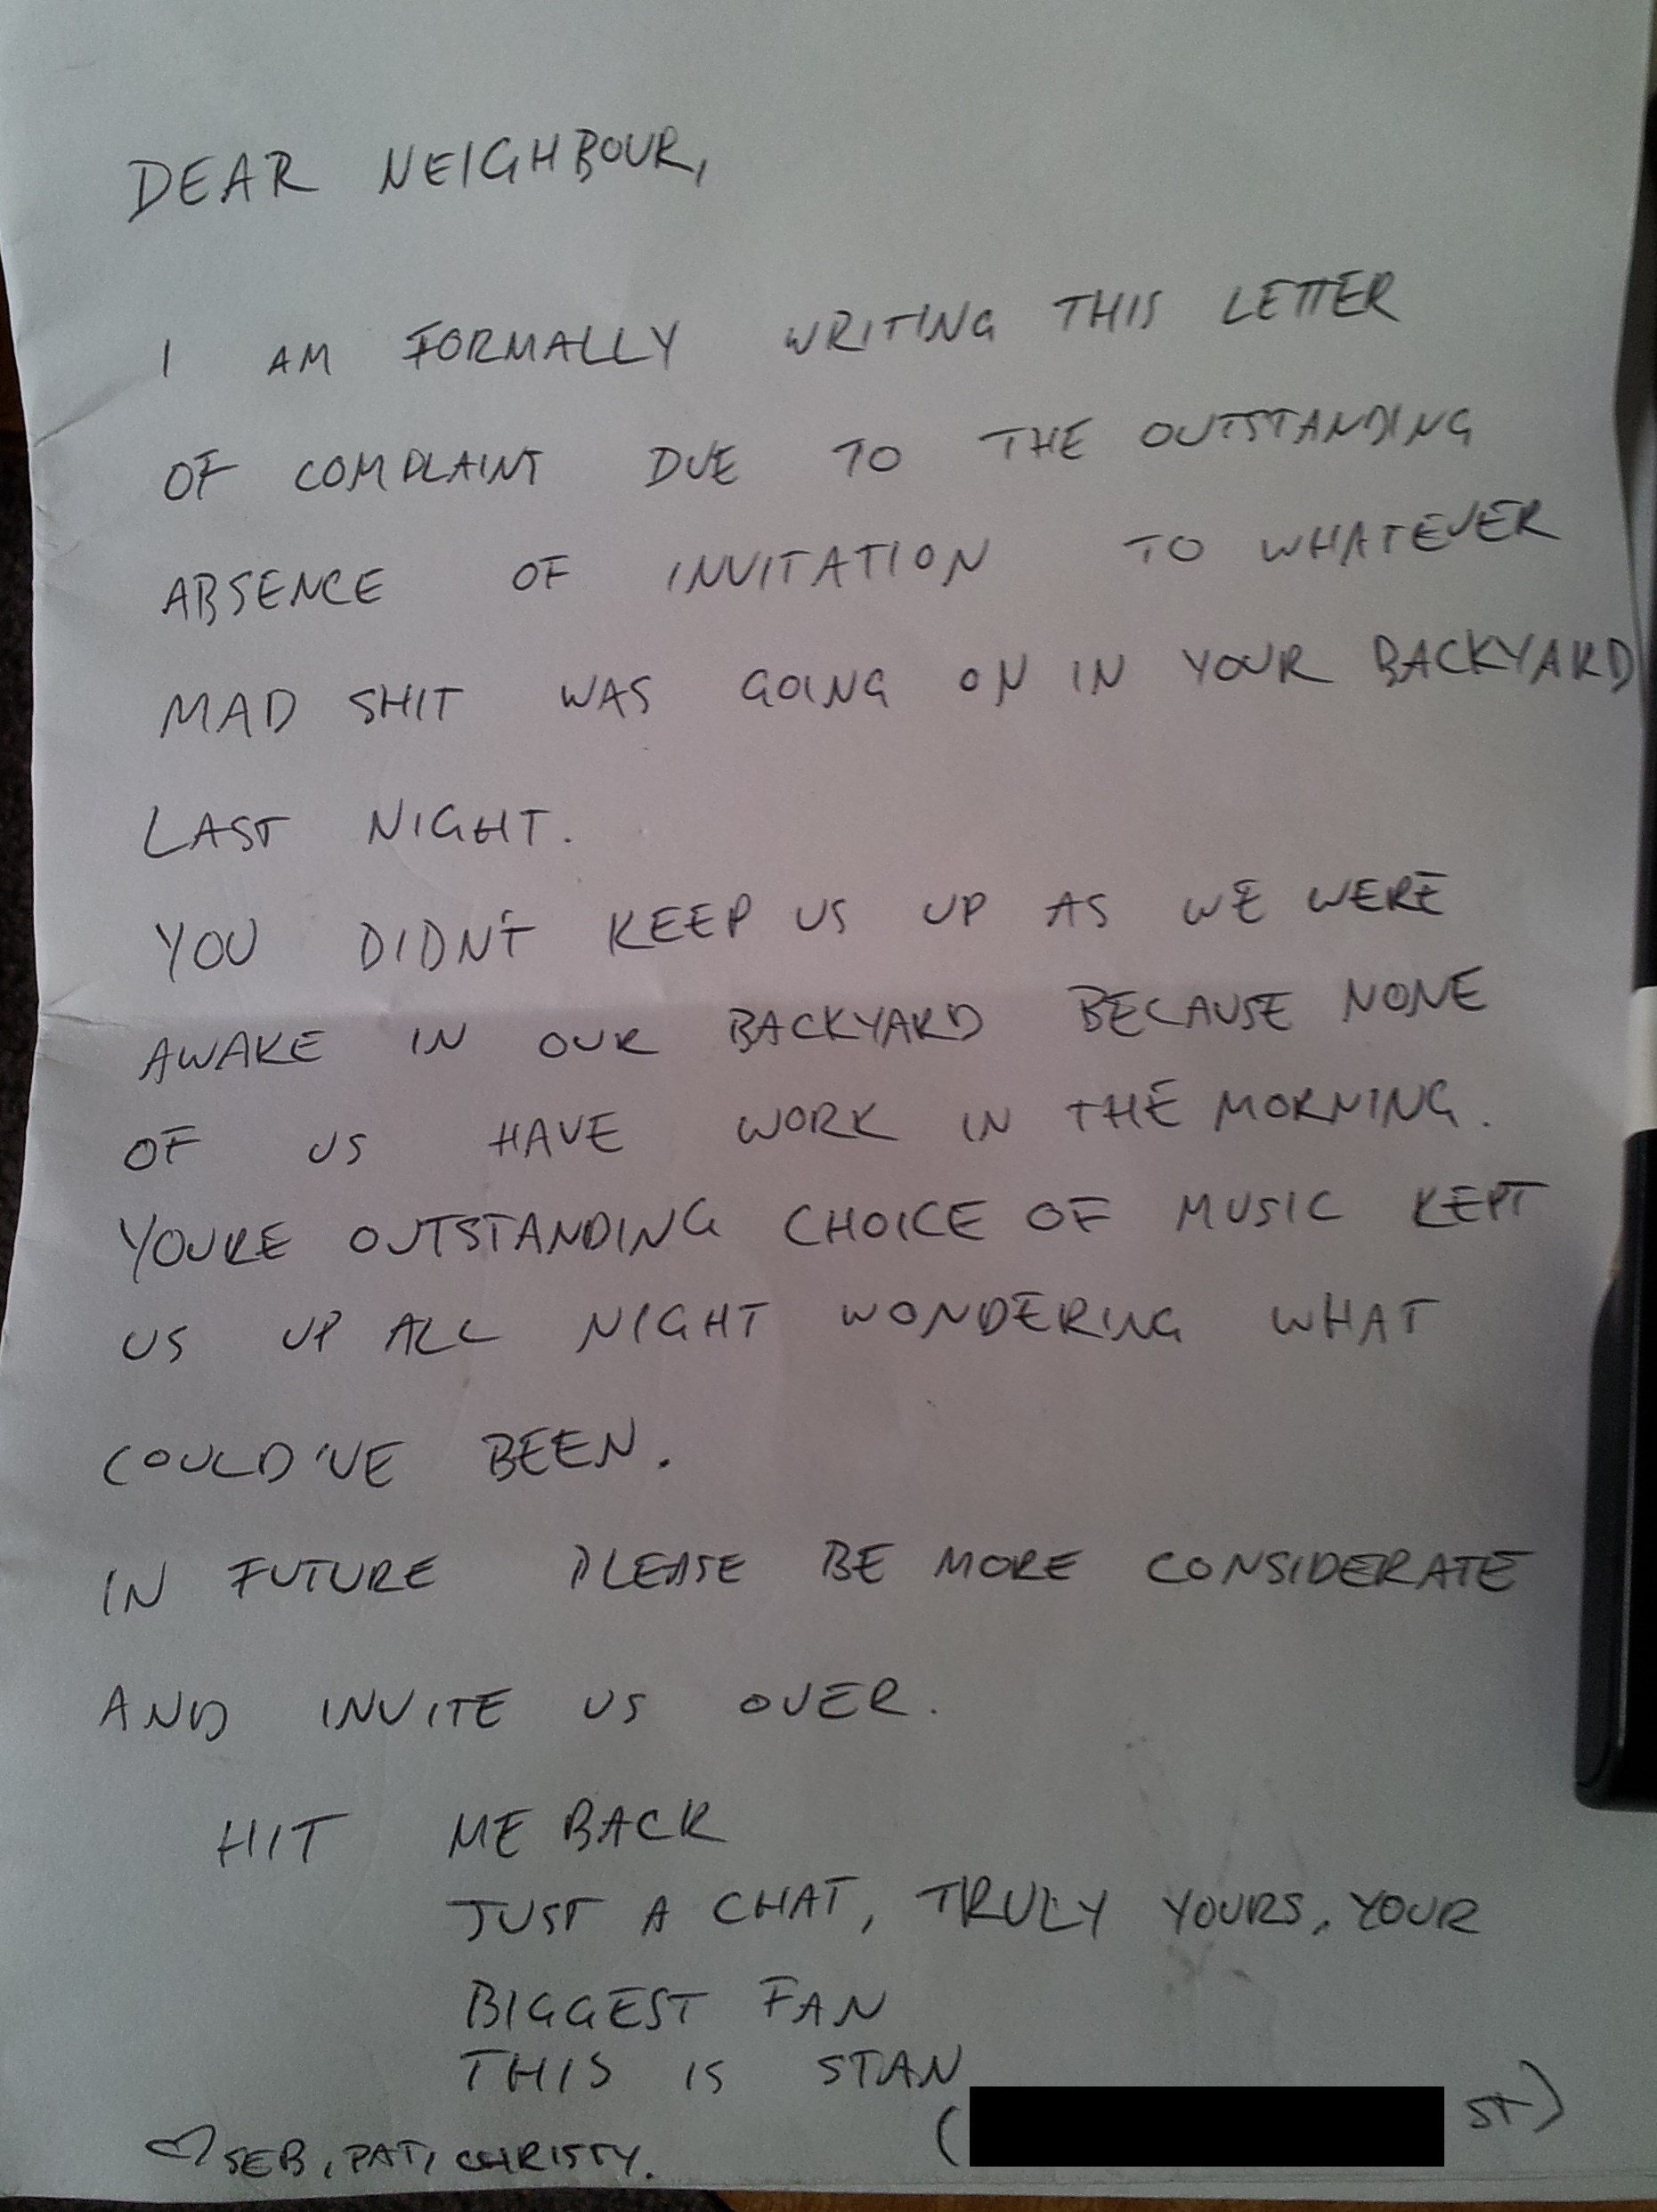 DEAR NEIGHBOUR,
I AM FORMALLY WRITING THIS LETTER
OF COMPLAINT DUE TO THE OUTSTANDING
ABSENCE OF INVITATION TO WHATEVER
MAD SHIT WAS GOING ON IN YOUR BACKYARD
LAST NIGHT.
YOU DIDN'T KEEP US UP AS WE WERE
AWAKE IN OUR BACKYARD BECAUSE NONE
OF US HAVE WORK IN THE MORNING.
YOURE OUTSTANDING CHOICE OF MUSIC KEPT
US UP ALL NIGHT WONDERING WHAT
COULD'VE BEEN.
IN FUTURE PLEASE BE MORE CONSIDERATE
AND INVITE US OVER.
HIT ME BACK
JUST A CHAT, TRULY YOURS, YOUR
BIGGEST FAN
THIS IS STAN
( ST)
♡ SEB, PAT, CHRISTY.